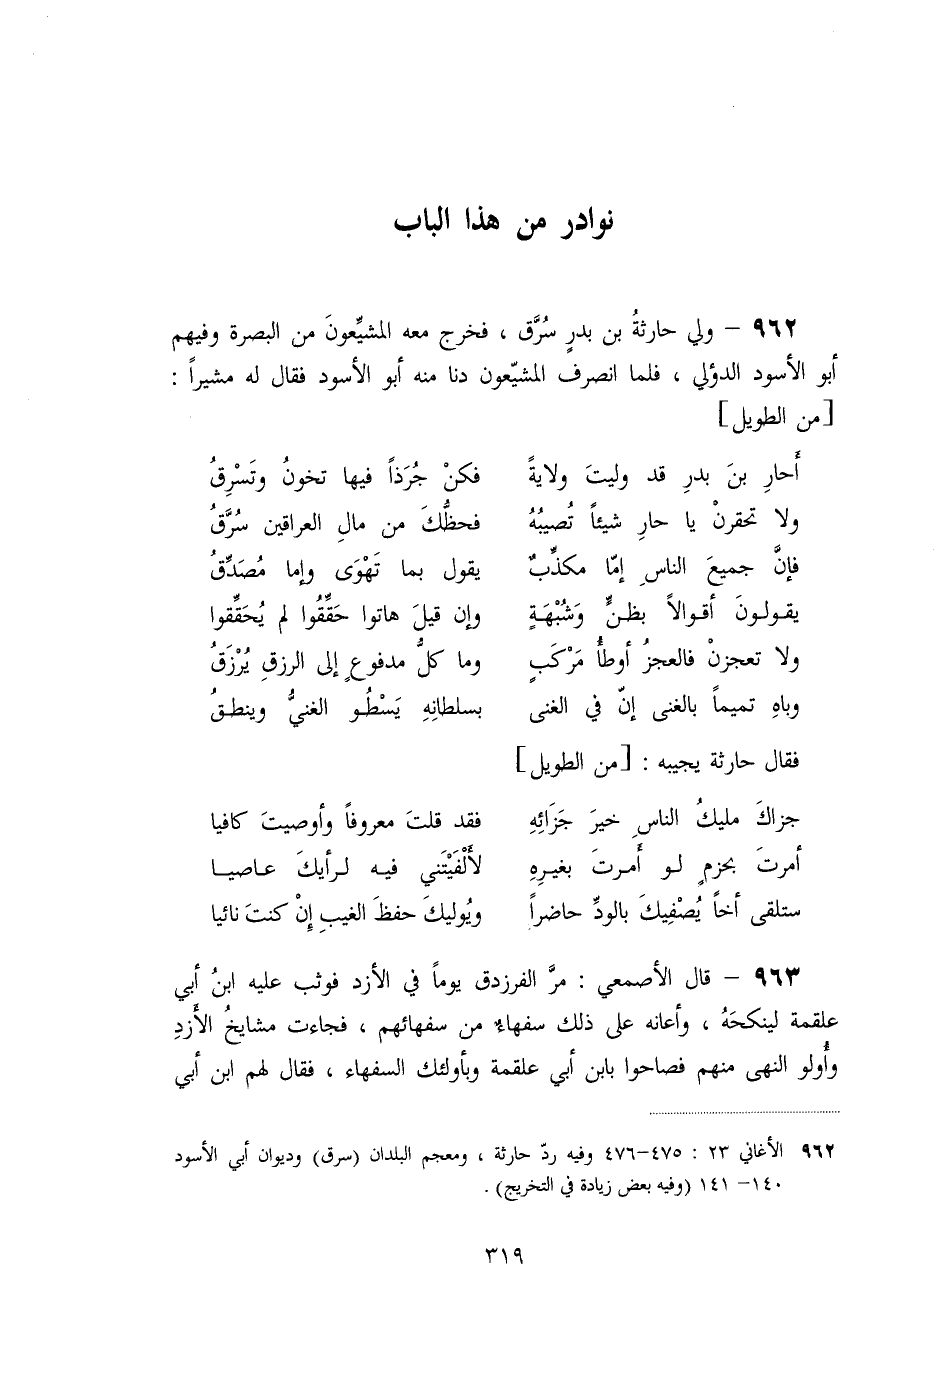 نوادر من هذا الباب
٩٦٢ – ولي حارثةُ بن بدرٍ سُرَّق ، فخرج معه المشيِّعونَ من البصرة وفيهم
أبو الأسود الدؤلي ، فلما انصرف المشيّعون دنا منه أبو الأسود فقال له مشيراً :
[من الطويل]
أَحارِ بنَ بدرِ قد وليتَ ولايةً فكنْ جُرَذاً فيها تخونُ وتَسْرِقُ
ولا تحقرنْ يا حارِ شيئاً تُصيبُهُ فحظُّكَ من مالِ العراقين سُرَّقُ
فإنَّ جميعَ الناسِ إمّا مكذِّبٌ يقول بما تَهْوَى وإما مُصَدِّقُ
يقولونَ أقوالاً بظنٍّ وَشُبْهَةٍ وإن قيلَ هاتوا حَقِّقُوا لم يُحَقِّقوا
ولا تعجزنْ فالعجزُ أوطأُ مَرْكَبٍ وما كلُّ مدفوعٍ إلى الرزقِ يُرْزَقُ
وباهِ تميماً بالغنى إنّ في الغنى بسلطانِهِ يَسْطُو الغنيُّ وينطقُ
فقال حارثة يجيبه : [من الطويل]
جزاكَ مليكُ الناسِ خيرَ جَزَائِهِ فقد قلتَ معروفاً وأوصيتَ كافيا
أمرتَ بحزمٍ لو أَمرتَ بغيرِهِ لأَلْفَيْتَني فيه لرأيكَ عاصيا
ستلقى أخاً يُصْفِيكَ بالودِّ حاضراً ويُوليكَ حفظَ الغيبِ إِنْ كنتَ نائيا
٩٦٣ – قال الأصمعي : مرَّ الفرزدق يوماً في الأزد فوثب عليه ابنُ أبي
علقمة لينكحَهُ ، وأعانه على ذلك سفهاءُ من سفهائهم ، فجاءت مشايخُ الأَزدِ
وأُولو النهى منهم فصاحوا بابن أبي علقمة وبأولئك السفهاء ، فقال لهم ابن أبي
٩٦٢ الأغاني ٢٣ : ٤٧٥–٤٧٦ وفيه ردّ حارثة ، ومعجم البلدان (سرق) وديوان أبي الأسود
١٤٠– ١٤١ (وفيه بعض زيادة في التخريج) .
٣١٩